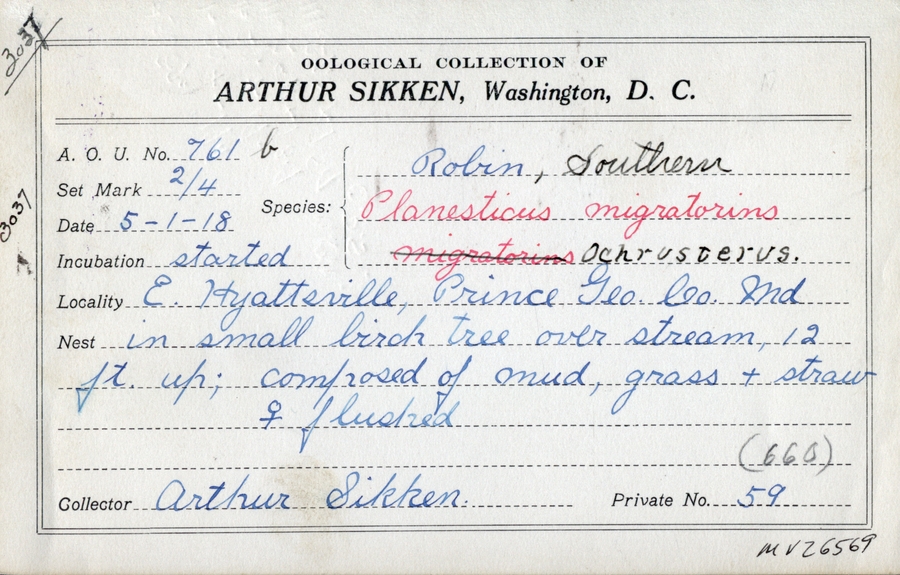 3037
OOLOGICAL COLLECTION OF
ARTHUR SIKKEN, Washington, D. C.
A. O. U. No. 761 b
Set Mark 2/4
Date 5-1-18
Incubation started
Species:
Robin, Southern
Planesticus migratorius
migratorius Ochrusterus.
3037
Locality E. Hyattsville, Prince Geo. Co. Md
Nest in small birch tree over stream, 12
ft. up; composed of mud, grass + straw
♀ flushed
(660)
Collector Arthur Sikken.
Private No. 59
MVZ6569